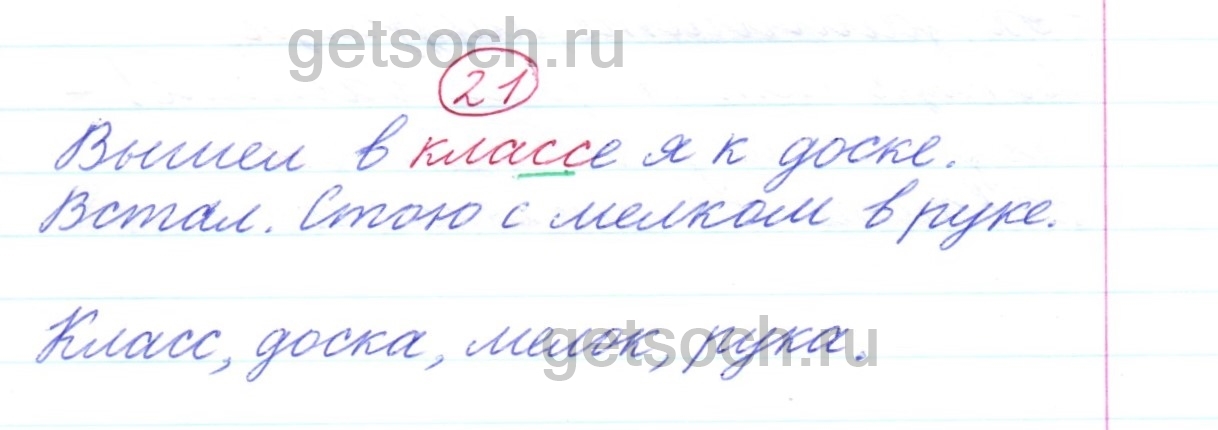 getsoch.ru
21
Вышел в классе я к доске.
Встал. Стою с мелком в руке.
Класс, доска, мелок, рука.
getsoch.ru